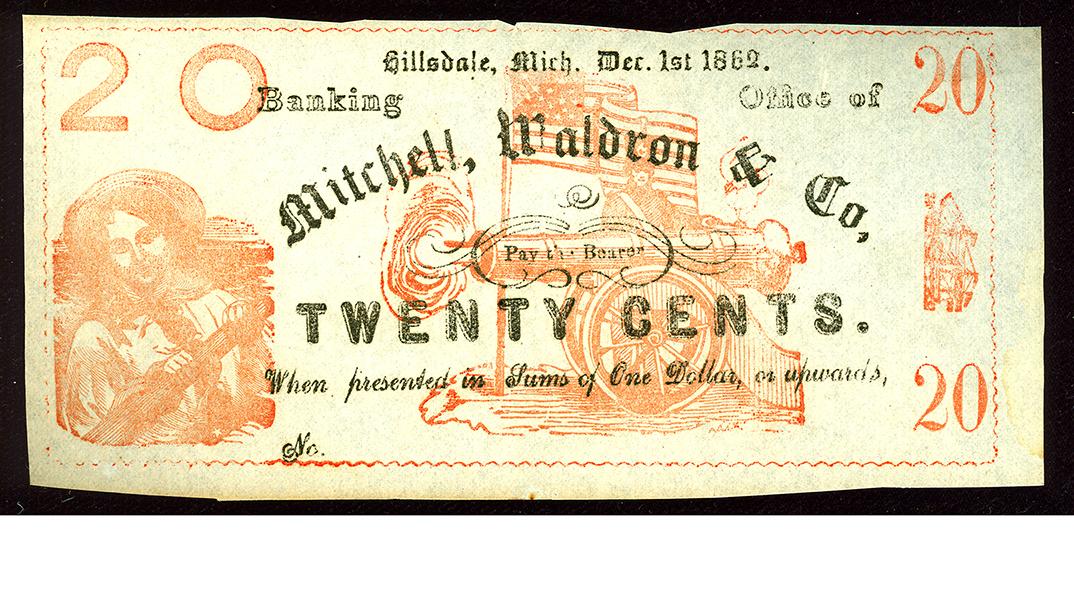 20
Hillsdale, Mich. Dec. 1st 1862.
20
Banking Office of
Mitchell, Waldron & Co,
Pay the Bearer
TWENTY CENTS.
When presented in Sums of One Dollar, or upwards,
20
No.